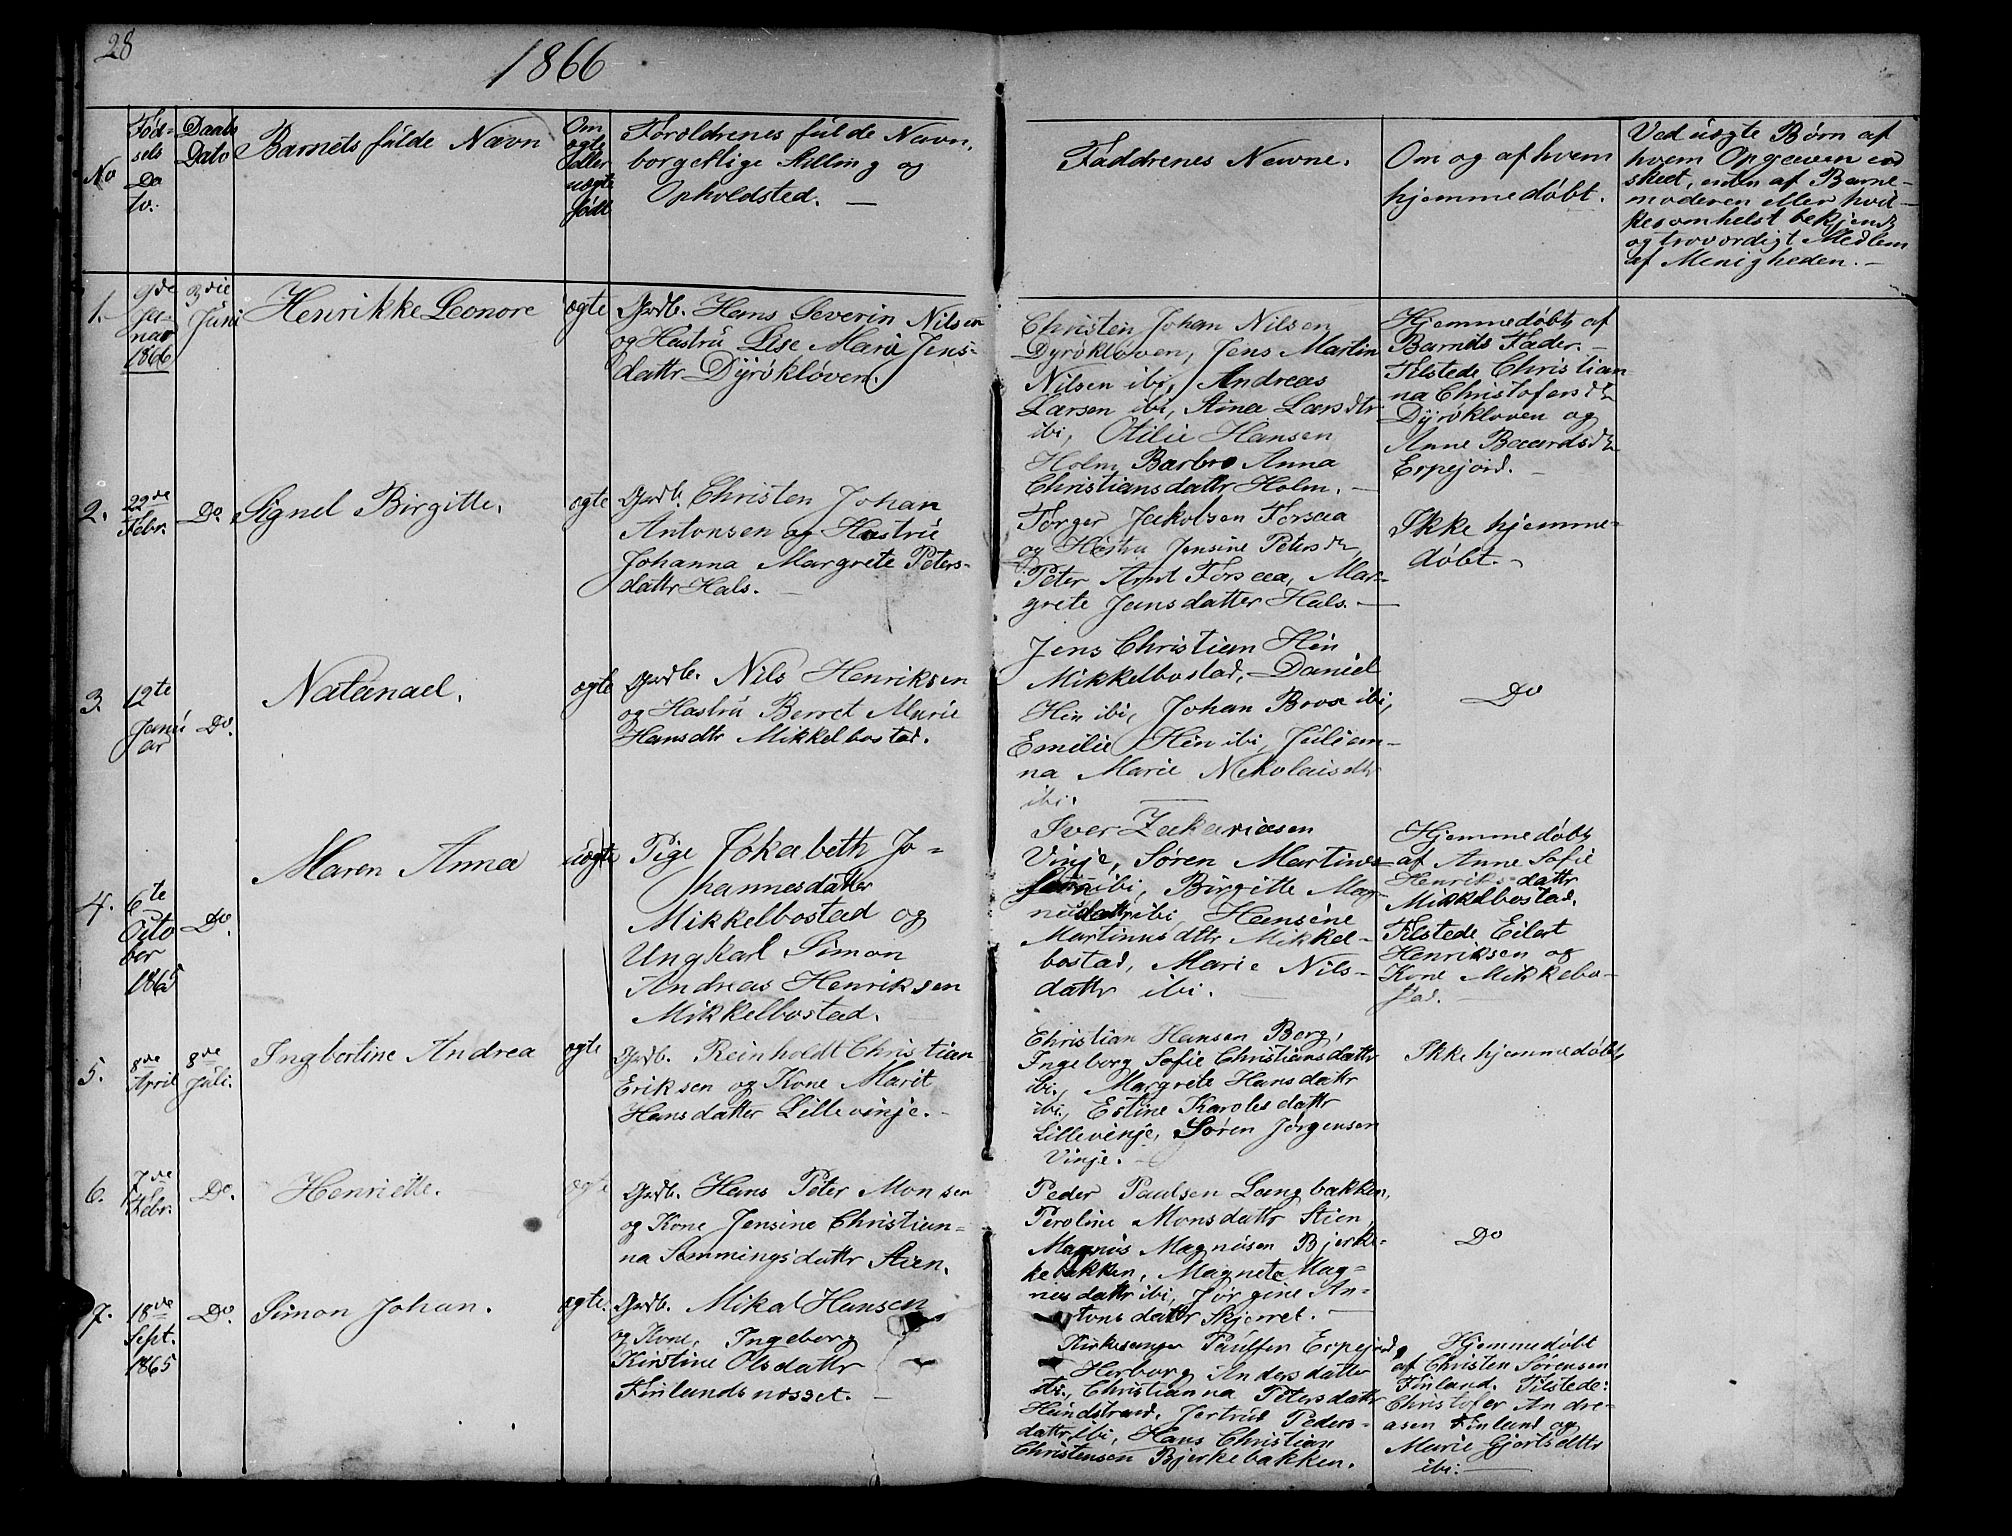 28
1866
No
Fød-
sels
Da
to.
Daabs
Dato
Barnets fulde Navn
Om
ægte
Eller
uægte
født
Forældrenes fulde Navn,
borgerlige Stilling og
Opholdsted. —
Faddrenes Navne.
Om og af hvem
hjemmedøbt.
Ved uægte Børn af
hvem Opgaven er
skeet, enten af Barne-
moderen eller hvil-
kesomhelst bekjendt
og troværdigt Medlem
af Menigheden. —
1.
9de
Ja-
nuar
1866
3die
Juni
Henrikke Leonore
ægte
Grdb. Hans Severin Nilsen
og Hustru Lise Marie Jens-
dattr Dyrøkløven.
Christen Johan Nilsen
Dyrøkløven, Jens Martin
Nilsen ibi, Andreas
Larsen ibi, Stina Larsdtr
ibi, Otilie Hansen
Holm Barbro Anna
Christiansdattr Holm. —
Hjemmedøbt af
Barnets Fader. —
Tilstede Christian
na Christofersdtr
Dyrøkløven og
Anne Baardsdtr
Erpejord. —
2.
22de
Febr.
Do
Signel Birgitte.
ægte
Grdb. Christen Johan
Antonsen og Hustru
Johanna Margrete Peters-
dattr Hals. —
Torger Jakobsen Forsaa
og Hustru Jensine Petersdtr,
Peter Arnt Forsaa, Mar-
grete Jensdatter Hals. —
Ikke hjemme-
døbt. —
3.
12te
Janu
ar
Do.
Natanael.
ægte
Grdb. Nils Henriksen
og Hustru Berret Marie
Hansdtr Mikkelbostad.
Jens Christian Hein
Mikkelbostad, Daniel
Hein ibi, Johan Brox ibi,
Emilie Hein ibi, Julian-
na Marie Nikolaisdtr
ibi.
Do
4.
6te
Octo
ber
1865
Do.
Maren Anna
uægte
Pige Jokabeth Jo-
hannesdatter
Mikkelbostad og
Ungkarl Simon
Andreas Henriksen
Mikkelbostad. —
Iver Zakariasen
Vinje, Søren Martines-
sen ibi, Birgitte Mar-
dattr ibi, Hansine
Martinusdttr Mikkel-
bostad, Marie Nils-
dattr ibi. —
Hjemmedøbt
af Anne Sofie
Henriksdattr
Mikkelbostad,
Tilstede Eilert
Henriksen og
Kone Mikkelbo-
stad. —
5.
8de
April
8de
Juli.
Ingbertine Andrea
ægte
Grdb. Reinholdt Christian
Eriksen og Kone Marit
Hansdatter Lillevinje. —
Christian Hansen Berg,
Ingeborg Sofie Christiansdattr
ibi, Margrete Hansdattr
ibi, Estine Karolesdattr
Lillevinje, Søren Jørgensen
Vinje. —
Ikke hjemmedøbt
6.
7de
Febr.
Do.
Henriette. —
ægte
Grdb. Hans Peter Monsen
og Kone Jensine Christian-
na Semmingsdattr Stien.
Peder Paulsen Langbakken,
Peroline Monsdattr Stien,
Magnus Magnusen Bjerke-
kebakken, Magneta Mag-
nusdattr ibi, Jørgine An-
tonsdattr Skjerret. —
Do
7.
18de
Sept.
1865
Do.
Simon Johan.
ægte.
Grdb. Mikal Hansen
og Kone, Ingeborg
Kirstine Olsdattr
Finlandsnæsset. —
Kirkesanger Paulsen Erpejord,
Herborg Andersdatter
ibi, Christianna Petersdattr
Hundstrand, Jertrud Peders-
dattr ibi, Hans Christian
Christensen Bjerkebakken.
Hjemmedøbt
af Christen Sørensen
Finland. Tilstede:
Christofer Andre-
asen Finland og
Marie Gjertsdttr
ibi. —